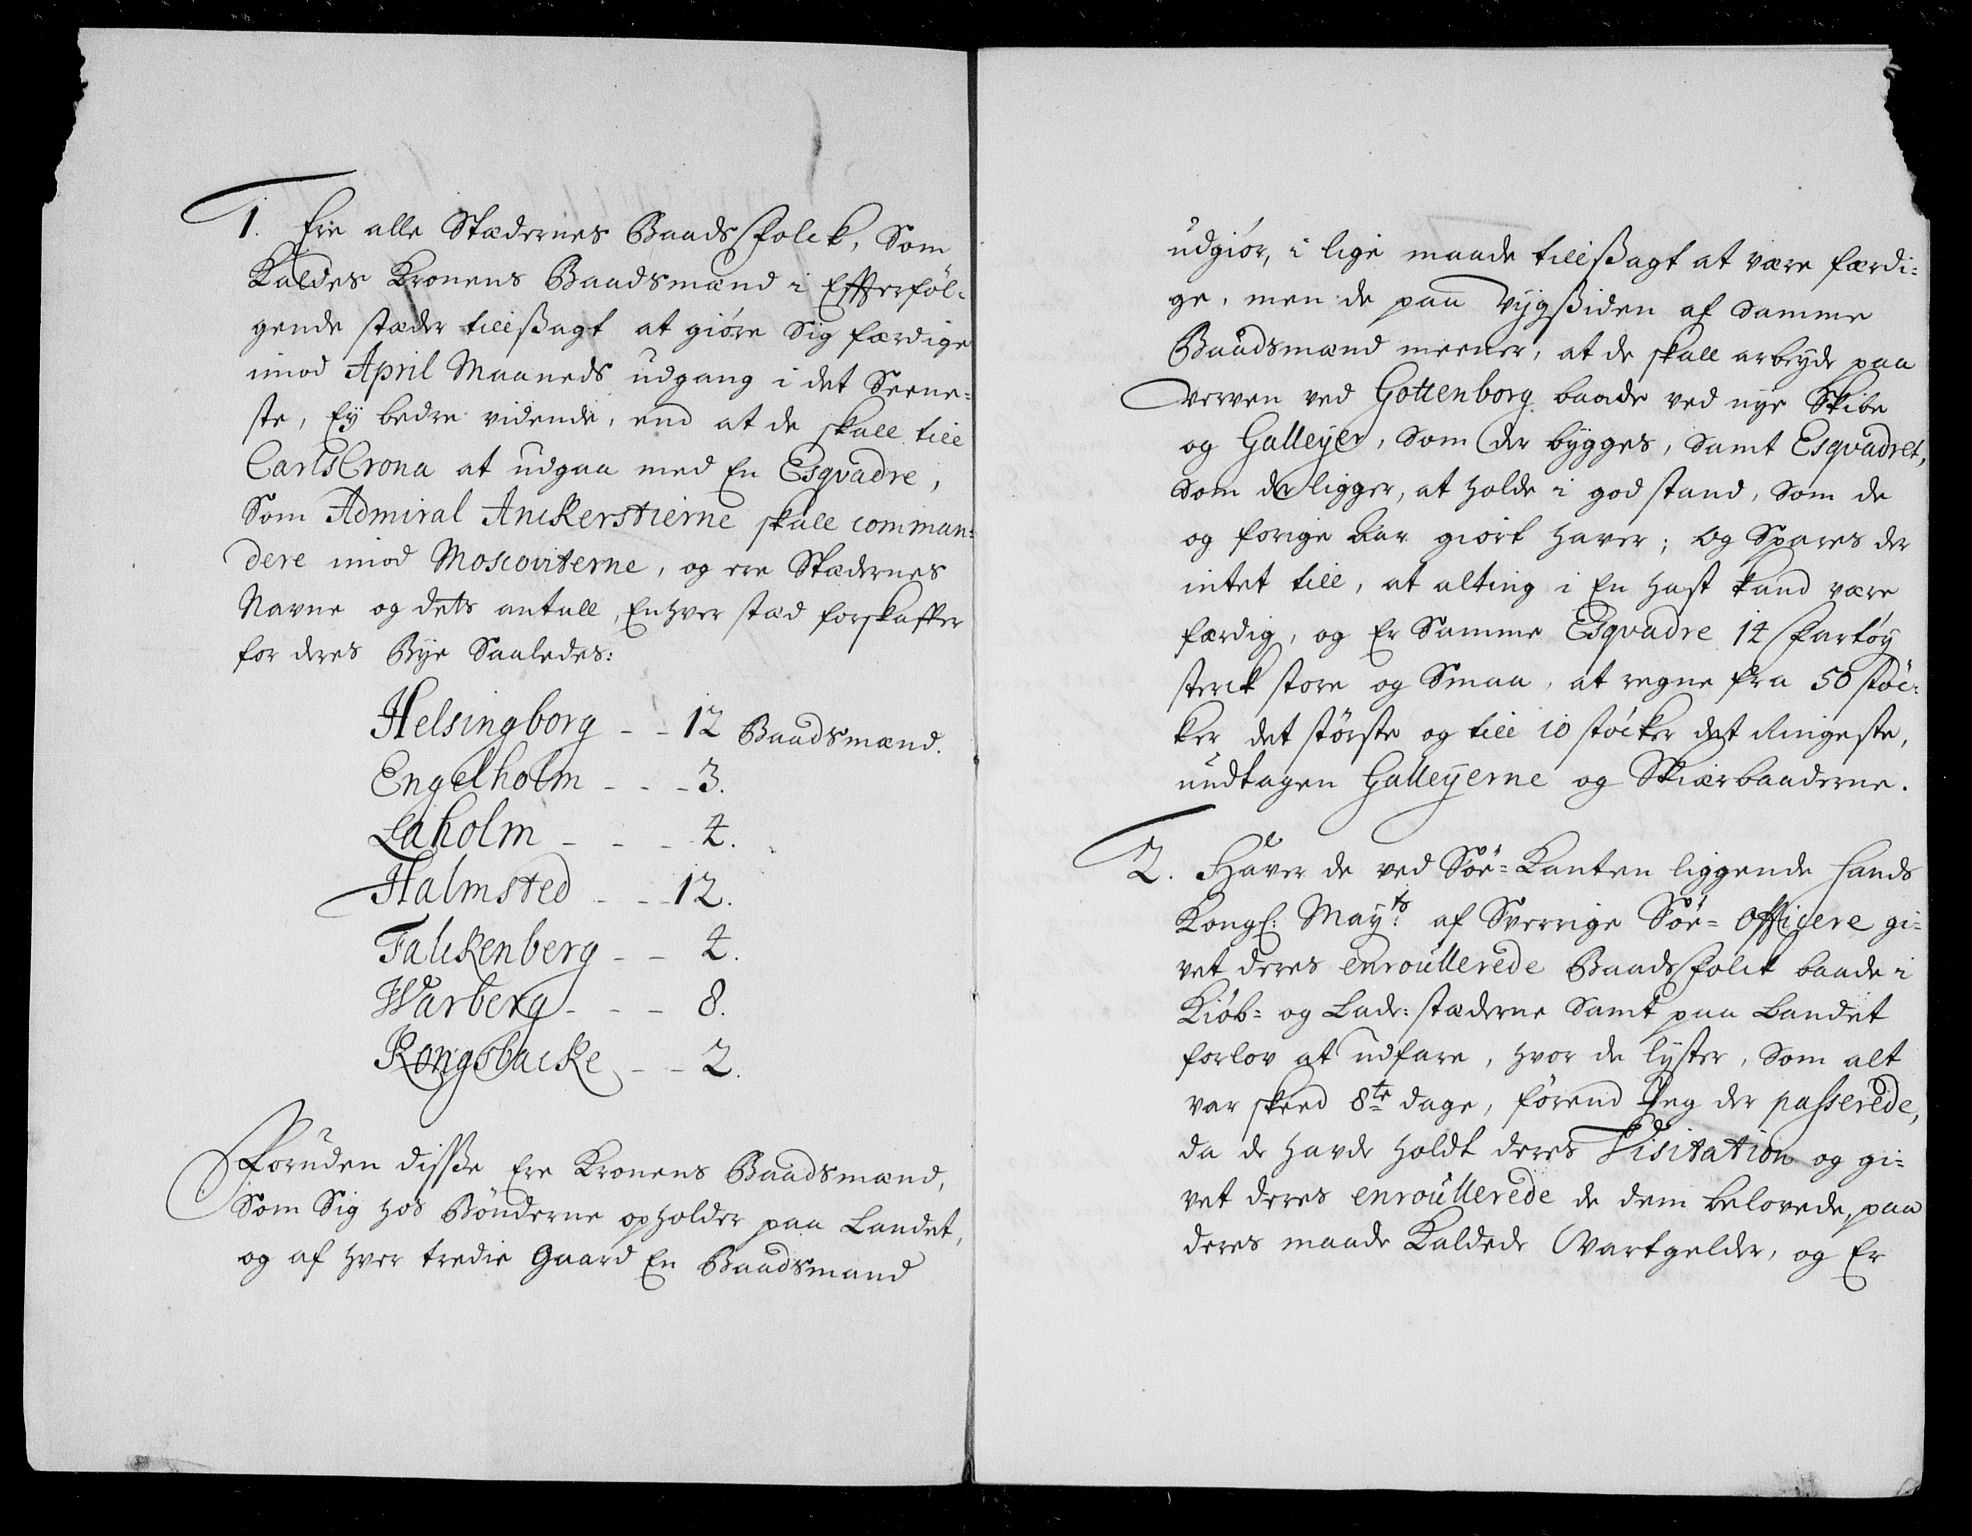 1. Ere alle Stædernes Baads Folck, Som
Kaldes Kronens Baadsmænd i Effterføl-
gende stæder tillßagt at giøre Sig færdige
imod April Maaneds udgang i det Seene-
ste, Ey bedre vidende, end at de skall till
CarlsCrona at udgaa med En Esqvadre,
Som Admiral Anckerstierne skall comman-
dere imod Moscoviterne, og ere Stædernes
Navne og dets antall, Enhver stæd forskaffer
for deres Bye Saaledes:
Helsingborg - - 12 Baadsmænd.
Engelholm - - - 3.
Laholm - - - 4.
Halmsted - - - 12.
Falckenberg - - 4.
Warberg - - - 8.
Kongsbacke - - 2.
Foruden disße Ere Kronens Baadsmænd,
Som Sig hos Bønderne opholder paa Landet,
og af hver tredie Gaard En Baadsmand
udgiør, i lige maade tillßagt at være færdi-
ge, men de paa Vygßiden af Samme
Baadsmænd meener, at de skall arbeyde paa
Verven ved Gottenborg baade ved nye Skibe
og Galleyer, Som der bygges, Samt Esqvadret,
Som der ligger, at holde i god stand, Som de
og forige Aar giört haver; og Spares der
intet till, at alting i En hast kand være
færdig, og Er Samme Esqvadre 14 Fartöy
sterck store og Smaa, at regne fra 50 stöc-
ker det störste og till 10 stöcker det Ringeste,
undtagen Galleyerne og Skiærbaaderne.
2. Haver de ved Söe-Kanten liggende Hands
Kongl: Mayts. af Sverrige Söe-Officere gi-
vet deres enroullerede Baads Folck baade i
Kiöb- og Lade-stæderne Samt paa Landet
forlov at udfare, hvor de lyster, Som alt
var skeed 8te dage, förend Jeg der passerede,
da de havde holdt deres Visitation og gi-
vet deres enroullerede de dem belovede, paa
deres maade Kaldede Vartgelder, og Er